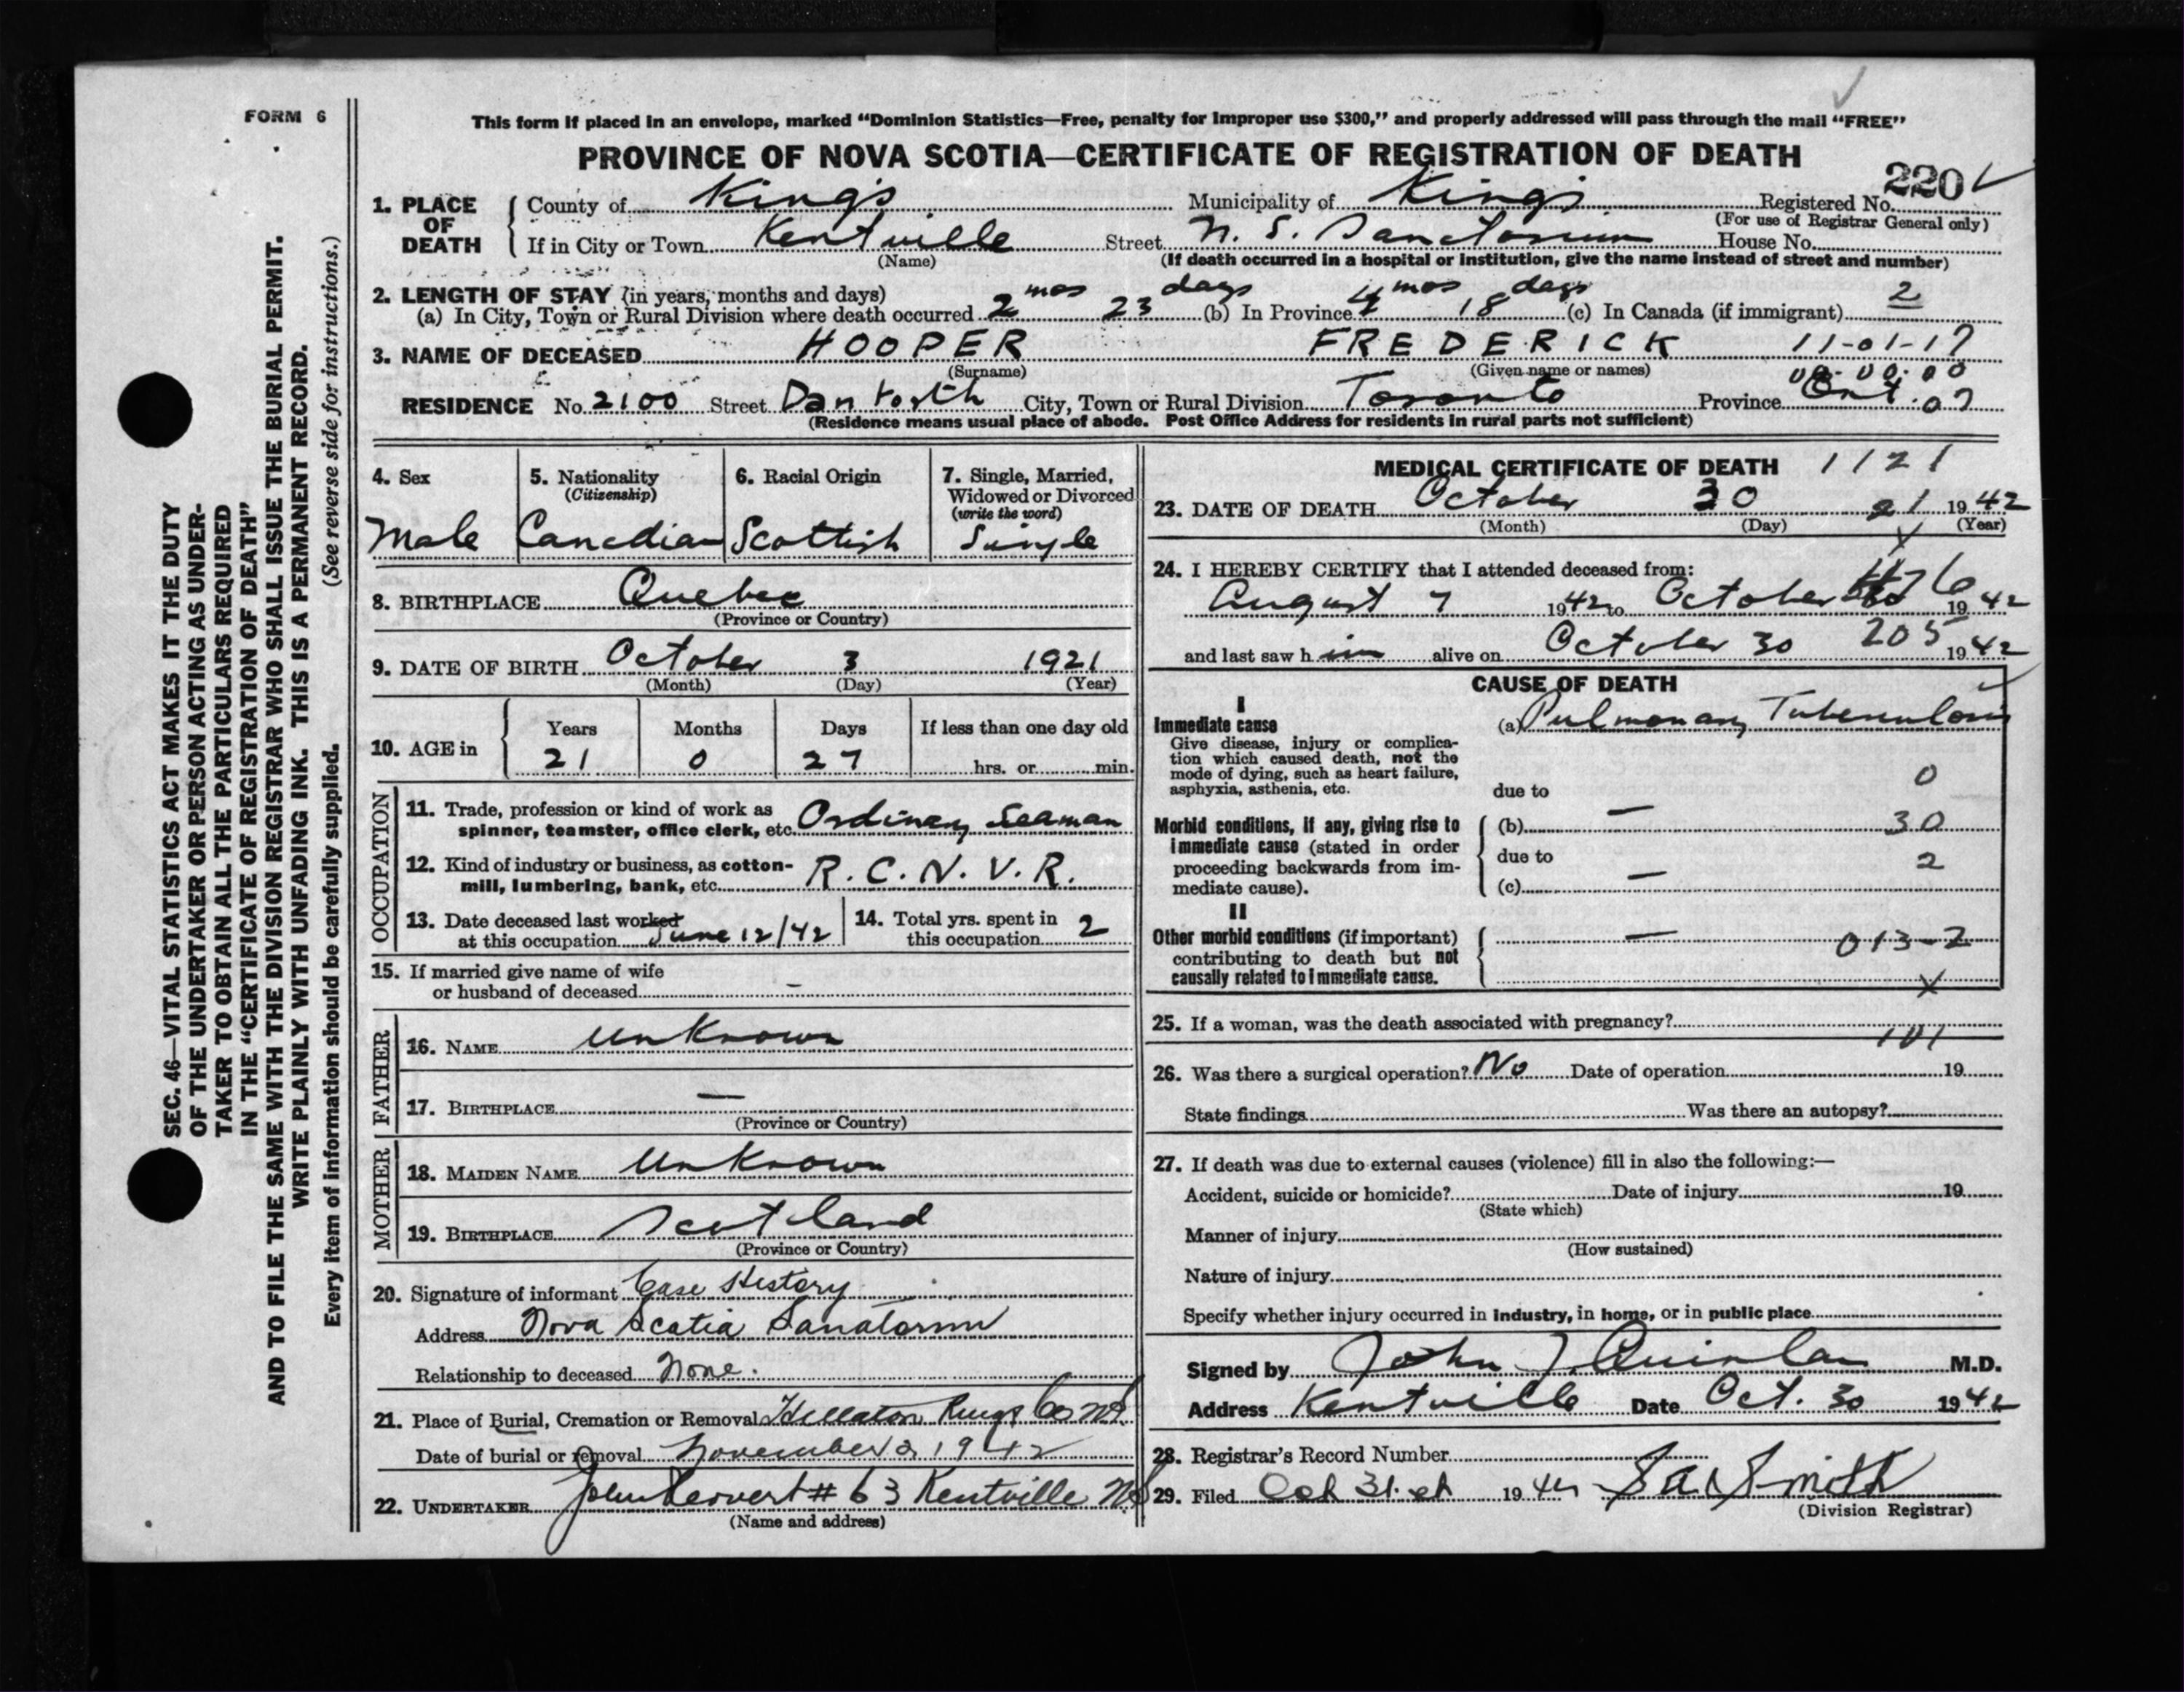 FORM 6
This form if placed in an envelope, marked “Dominion Statistics—Free, penalty for improper use $300,” and properly addressed will pass through the mail “FREE”
PROVINCE OF NOVA SCOTIA—CERTIFICATE OF REGISTRATION OF DEATH
220
1. PLACE OF DEATH
County of Kings Municipality of Kings Registered No.
(For use of Registrar General only)
If in City or Town Kentville Street N. S. Sanctorium House No.
(Name) (If death occurred in a hospital or institution, give the name instead of street and number)
2. LENGTH OF STAY (in years, months and days)
(a) In City, Town or Rural Division where death occurred 2 mos 23 days (b) In Province 4 mos 18 days (c) In Canada (if immigrant) 2
3. NAME OF DECEASED HOOPER FREDERICK 11-01-17
(Surname) (Given name or names) 00-00-00
RESIDENCE No. 2100 Street Danforth City, Town or Rural Division Toronto Province Ont. 07
(Residence means usual place of abode. Post Office Address for residents in rural parts not sufficient)
4. Sex Male
5. Nationality (Citizenship) Canadian
6. Racial Origin Scottish
7. Single, Married, Widowed or Divorced (write the word) Single
8. BIRTHPLACE Quebec
(Province or Country)
9. DATE OF BIRTH October 3 1921
(Month) (Day) (Year)
10. AGE in Years Months Days If less than one day old
21 0 27 hrs. or min.
OCCUPATION
11. Trade, profession or kind of work as
spinner, teamster, office clerk, etc. Ordinary Seaman
12. Kind of industry or business, as cotton-
mill, lumbering, bank, etc. R. C. N. V. R.
13. Date deceased last worked
at this occupation June 12/42
14. Total yrs. spent in
this occupation 2
15. If married give name of wife
or husband of deceased -
FATHER
16. NAME Unknown
17. BIRTHPLACE —
(Province or Country)
MOTHER
18. MAIDEN NAME Unknown
19. BIRTHPLACE Scotland
(Province or Country)
20. Signature of informant Case History
Address Nova Scotia Sanatorium
Relationship to deceased None.
21. Place of Burial, Cremation or Removal Hillaton Kings Co NS.
Date of burial or removal November 2 1942
22. UNDERTAKER # 63 Kentville NS
(Name and address)
MEDICAL CERTIFICATE OF DEATH 1121
23. DATE OF DEATH October 30 21 1942
(Month) (Day) (Year)
X
24. I HEREBY CERTIFY that I attended deceased from:
August 7 1942 to October 1942
and last saw h im alive on October 30 205 1942
CAUSE OF DEATH
I
Immediate cause
Give disease, injury or complica-
tion which caused death, not the
mode of dying, such as heart failure,
asphyxia, asthenia, etc.
(a) Pulmonary Tuberculosis
0
due to
Morbid conditions, if any, giving rise to
immediate cause (stated in order
proceeding backwards from im-
mediate cause).
(b) — 30
due to 2
(c) —
II
Other morbid conditions (if important)
contributing to death but not
causally related to immediate cause.
— 013-2
X
25. If a woman, was the death associated with pregnancy?
101
26. Was there a surgical operation? No Date of operation 19
State findings Was there an autopsy?
27. If death was due to external causes (violence) fill in also the following:—
Accident, suicide or homicide? Date of injury 19
(State which)
Manner of injury
(How sustained)
Nature of injury
Specify whether injury occurred in industry, in home, or in public place
Signed by John J. Quinlan M.D.
Address Kentville Date Oct. 30 1942
28. Registrar's Record Number
29. Filed Oct 31st 1942 Smith
(Division Registrar)
SEC. 46—VITAL STATISTICS ACT MAKES IT THE DUTY
OF THE UNDERTAKER OR PERSON ACTING AS UNDER-
TAKER TO OBTAIN ALL THE PARTICULARS REQUIRED
IN THE “CERTIFICATE OF REGISTRATION OF DEATH”
AND TO FILE THE SAME WITH THE DIVISION REGISTRAR WHO SHALL ISSUE THE BURIAL PERMIT.
WRITE PLAINLY WITH UNFADING INK. THIS IS A PERMANENT RECORD.
Every item of information should be carefully supplied. (See reverse side for instructions.)